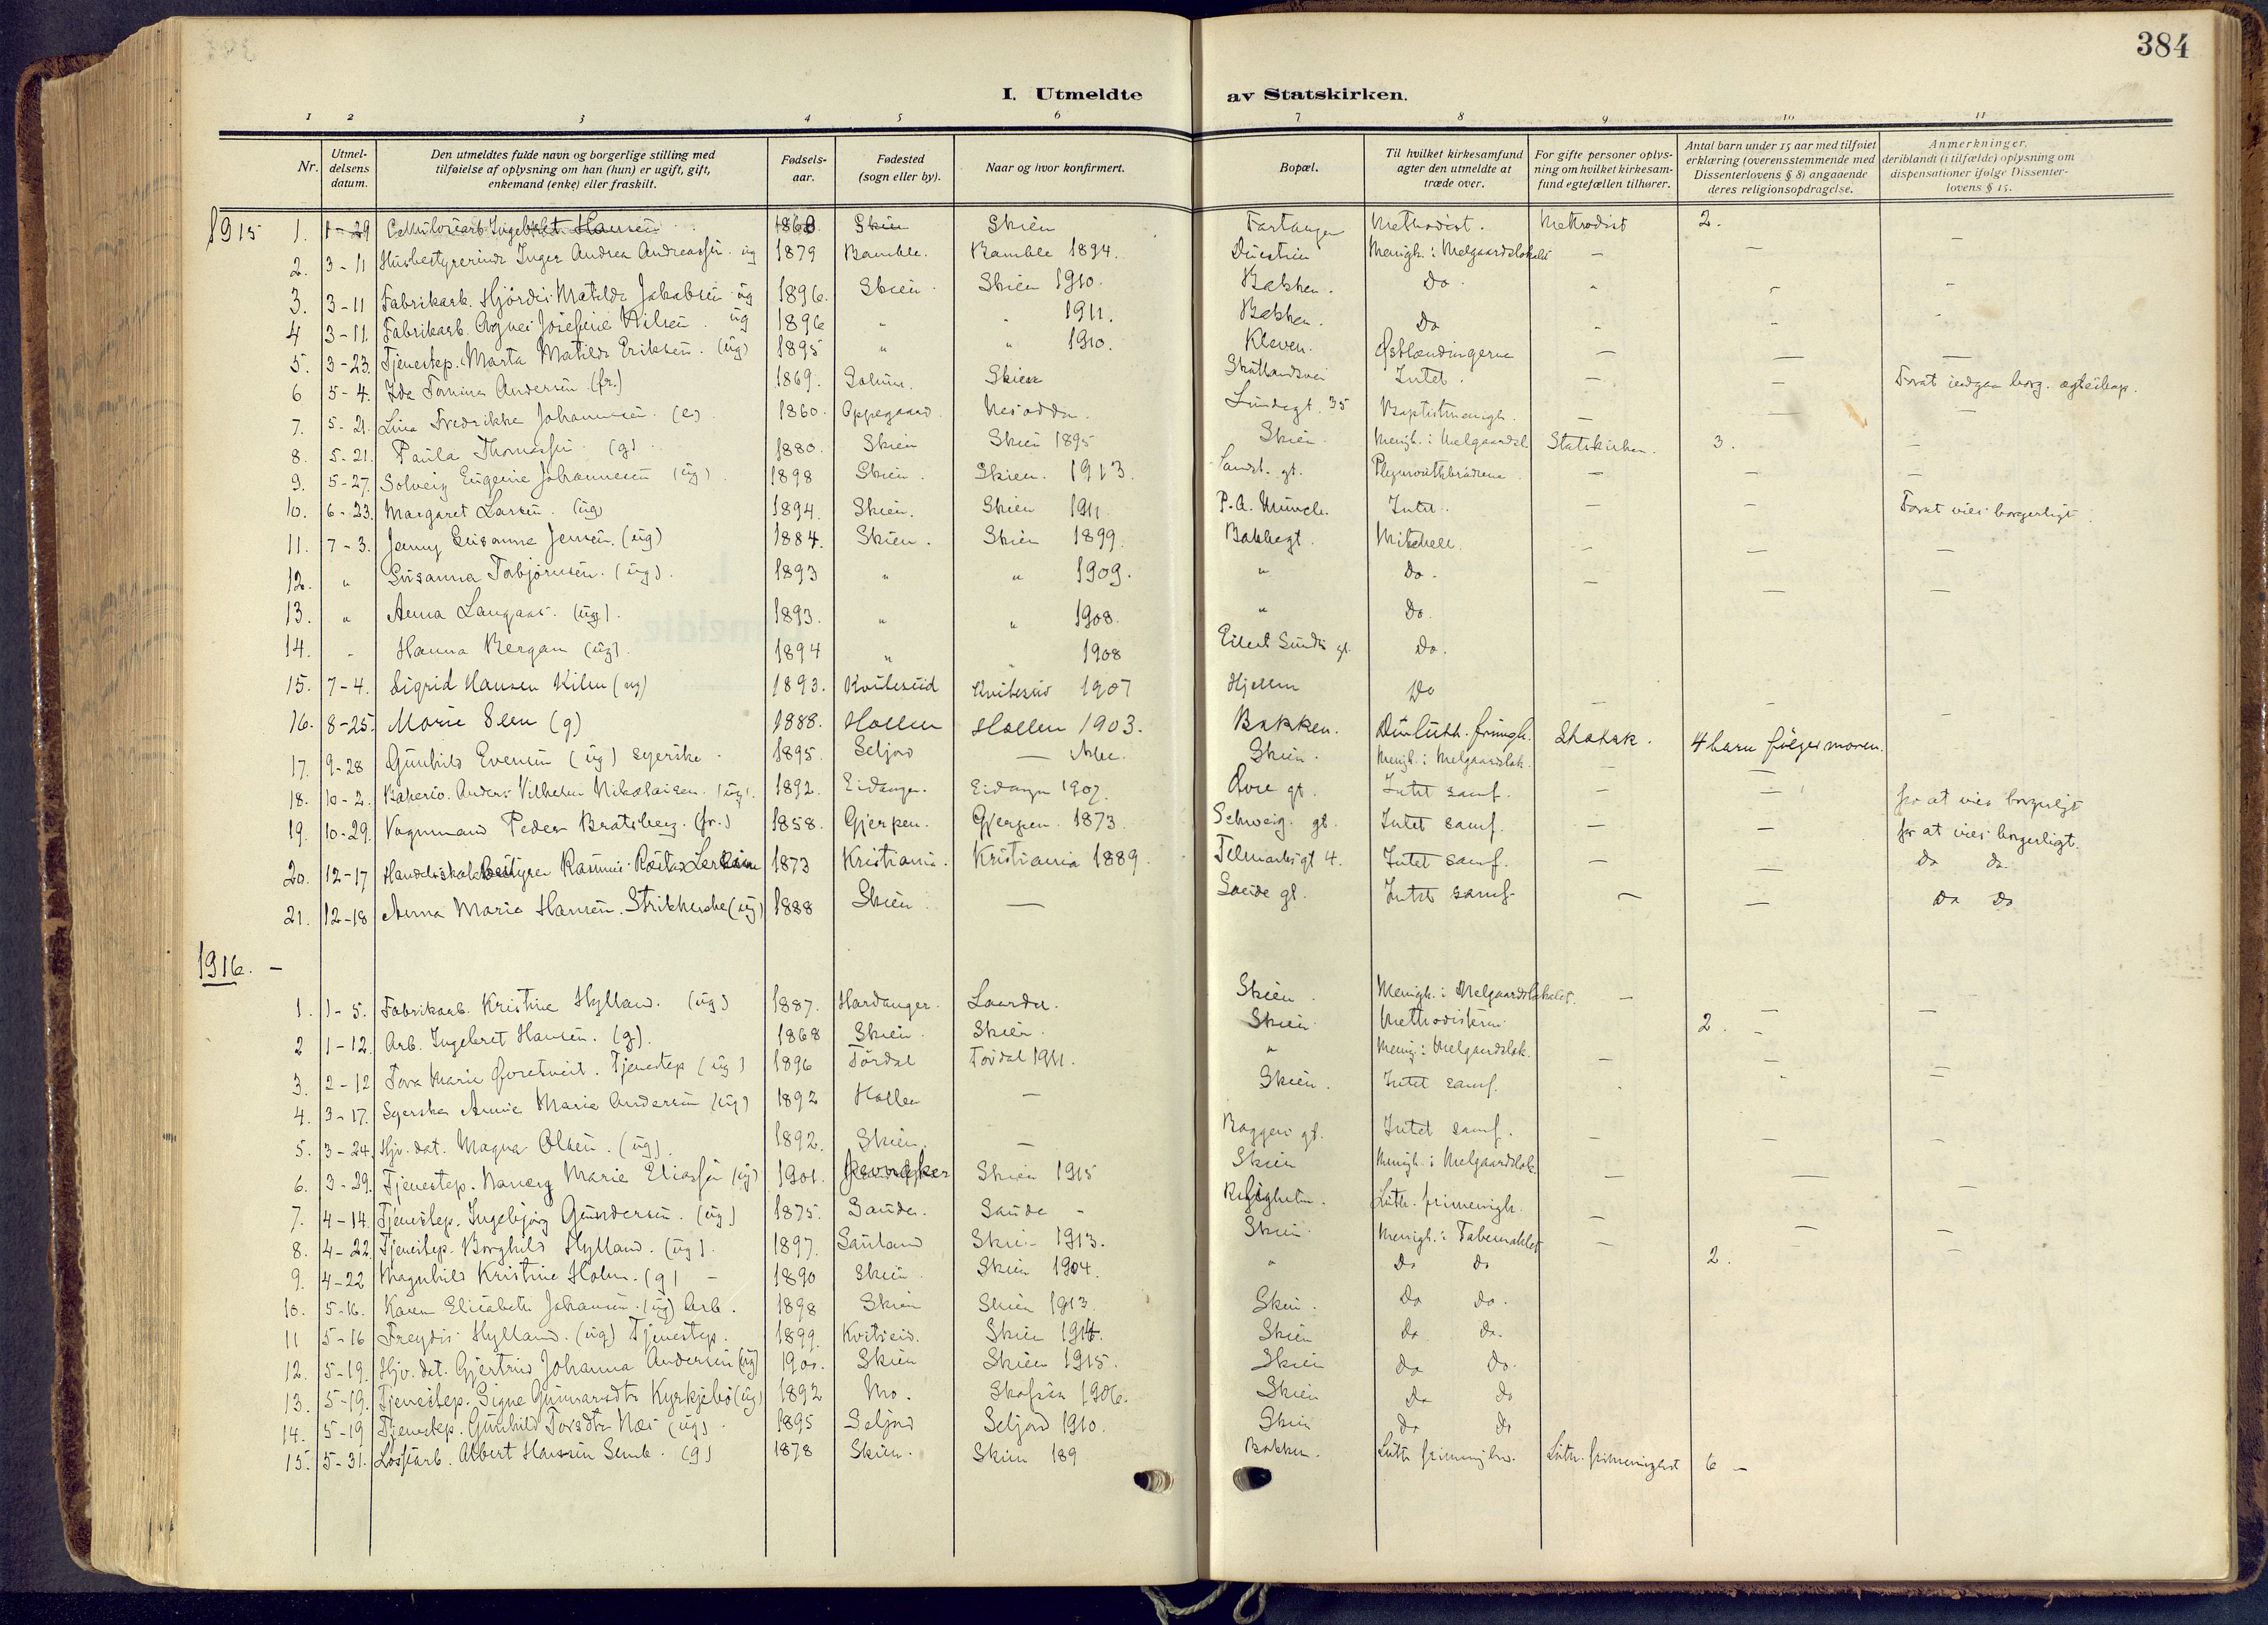 384
I. Utmeldte av Statskirken.
1 2 3 4 5 6 7 8 9 10 11
Nr. Utmeldelsens datum. Den utmeldtes fulde navn og borgerlige stilling med tilføielse af oplysning om han (hun) er ugift, gift, enkemand (enke) eller fraskilt. Fødselsaar. Fødested (sogn eller by). Naar og hvor konfirmert. Bopæl. Til hvilket kirkesamfund agter den utmeldte at træde over. For gifte personer oplysning om hvilket kirkesamfund egtefællen tilhører. Antal barn under 15 aar med tilføiet erklæring (overensstemmende med Dissenterlovens § 8) angaaende deres religionsopdragelse. Anmerkninger, deriblandt (i tilfælde) oplysning om dispensationer ifølge Dissenterlovens § 15.
1915 1. 1-29 Celluloséarb. Ingebret Hansen 1868 Skien Skien Methodist. Methodist 2.
2. 3-11 Husbestyrerinde Inger Andrea Andreassen. ug 1879 Bamble. Bamble 1894. Menigh. i Melgaardslokalet — — —
3. 3-11 Fabrikarb. Hjördis Matilde Jakobsen ug 1896. Skien. Skien 1910. Bakken. Do. - - -
4 3-11 Fabrikarb. Agnes Josefine Nilsen. ug 1896 " " 1911. Bakken. Do - - -
5. 3-23. Tjenestep. Marta Matilde Eriksen. (ug) 1895 " " 1910. Kleven. Østlændingerne — — —
6 5-4. Ida Tomina Andersen (fr.) 1869. Solum. Skien Intet. — — Forat indgaa borg. ægteskap.
7. 5-21. Lina Fredrikke Johannesen. (e) 1860. Oppegaard. Nesodden. Lundegt. 35 Baptistmenigh. — — —
8. 5-21. Paula Thomassen. (g). 1880. Skien Skien 1895 Skien Menigh. i Melgaardsl. Statskirken. 3. —
9. 5-27. Solveig Eugenie Johannesen (ug). 1898 Skien. Skien. 1913. Landt. gt. Plymouthbrødrene — — —
10. 6-23. Margaret Larsen. (ug) 1894. Skien. Skien 1911 P. A. Munch. Intet. — — Forat vies borgerligt.
11. 7-3. Jenny Susanne Jensen. (ug) 1884. Skien. Skien 1899. Bakkegt. Mitchell. — — —
12. " Susanna Torbjörnsen. (ug). 1893 " " 1909. " Do. — — —
13. " Anna Langaas. (ug). 1893. " " 1908. " Do.
14. " Hanna Bergan (ug). 1894 " " 1908 Eilert Sundts gt. Do.
15. 7-4. Sigrid Hansen Kilen (ug) 1893. Kviteseid Kviteseid 1907 Hjellen Do — — —
16. 8-25. Marie Steen (g) 1888. Hollen Hollen 1903. Bakken. Statsk. 4 barn følger moren.
17. 9-28 Gunhild Evensen (ug) syerske. 1895. Seljord — Skien. Menigh. i Melgaardslok. — —
18. 10-2. Anders Vilhelm Nikolaisen. (ug). 1892. Eidanger. Eidanger 1907. Øvre gt. Intet samf. — — for at vies borgerligt
19. 10-29. Vognmand Peder Bratsberg. (fr.) 1858. Gjerpen. Gjerpen 1873. Schweig. gt. Intet samf. — — for at vies borgerligt.
20. 12-17 Handelsskolebestyrer Rasmus 1873 Kristiania. Kristiania 1889. Telmarksgt 4. Intet samf. — — do do.
21. 12-18 Anna Marie Hansen. Strikkerske (ug) 1888 Skien. — Snide gt. Intet samf. — — Do Do
1916. —
1. 1-5. Fabrikarb. Kristine Hylland. (ug) 1887. Hardanger. Laardal. Skien. Menigh. i Melgaardslokalet. — — —
2 1-12. Arb. Ingebret Hansen. (g). 1868 Skien. Skien. Skien. Methodisterne. 2.
3. 2-12 Tora Marie Tjenestep (ug) 1896 Tördal Tördal 1911. " Menig. i Melgaardslok. — — —
4. 3-17. Syerske Annie Marie Andersen (ug) 1892 Hollen — Skien. Intet samf.
5. 3-24. Hjv. dat. Magna Olsen. (ug). 1892. Skien. — Bøggers gt. Intet samf. — —
6. 3-29. Tjenestep. Marie Eliassen (ug) 1901. Jevnaker Skien 1915 Skien Menigh. i Melgaardslok. — — —
7. 4-14. Tjenestep. Ingebjörg Gundersen. (ug) 1875. Saude. Saude - Luth. frimenigh. — — —
8. 4-22. Tjenestep. Borghild Hylland. (ug). 1897. Sauland Skien 1913. Skien Menigh. i Tabernaklet — —
9. 4-22 Magnhild Kristine Holm. (g) - 1890 Skien. Skien 1904. " Do do 2.
10. 5-16. Karen Elisabeth Johansen. (ug) Arb. 1898 Skien Skien 1913. Skien. Do do.
11 5-16 Freydis Hylland. (ug) Tjenestep. 1899. Kvitseid. Skien 1914. Skien do do.
12. 5-19. Hjv. dat. Gjertrud Johanna Andersen (ug) 1901. Skien Skien 1915. Skien do do.
13. 5-19. Tjenestep. Signe Gunnarsdtr. Kyrkjebö (ug) 1892 Mo. Skafsaa 1906. Skien Do do
14. 5-19 Tjenestep. Gunhild Torsdtr. Næs (ug). 1895 Seljord Seljord 1910. Skien do do
15. 5-31. Lossearb. Albert Hansen Semb. (g) 1878 Skien. Skien 189 Bakken. Luth. frimenighed. Luth. frimenighed 6 —